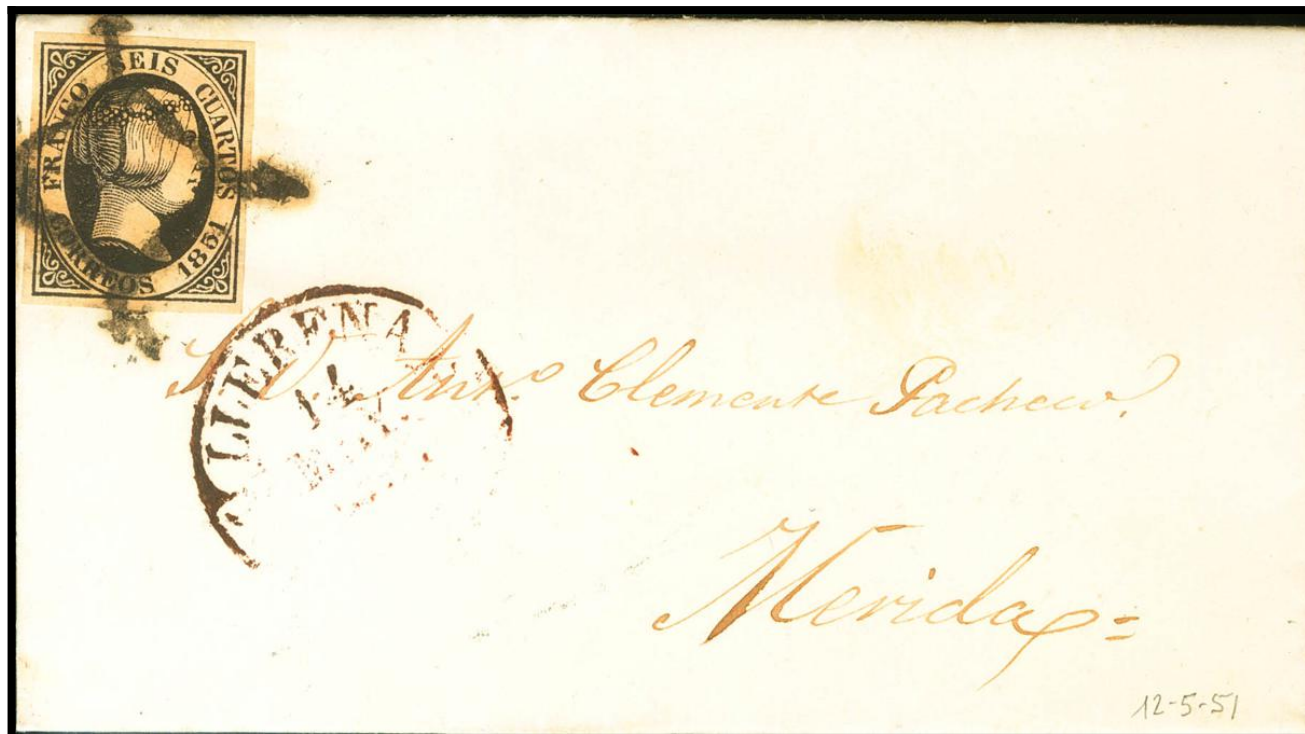 FRANCO SEIS CUARTOS
CORREOS 1851
LLERENA
14
S. D. Antº Clemente Pacheco.
Merida =
12-5-51